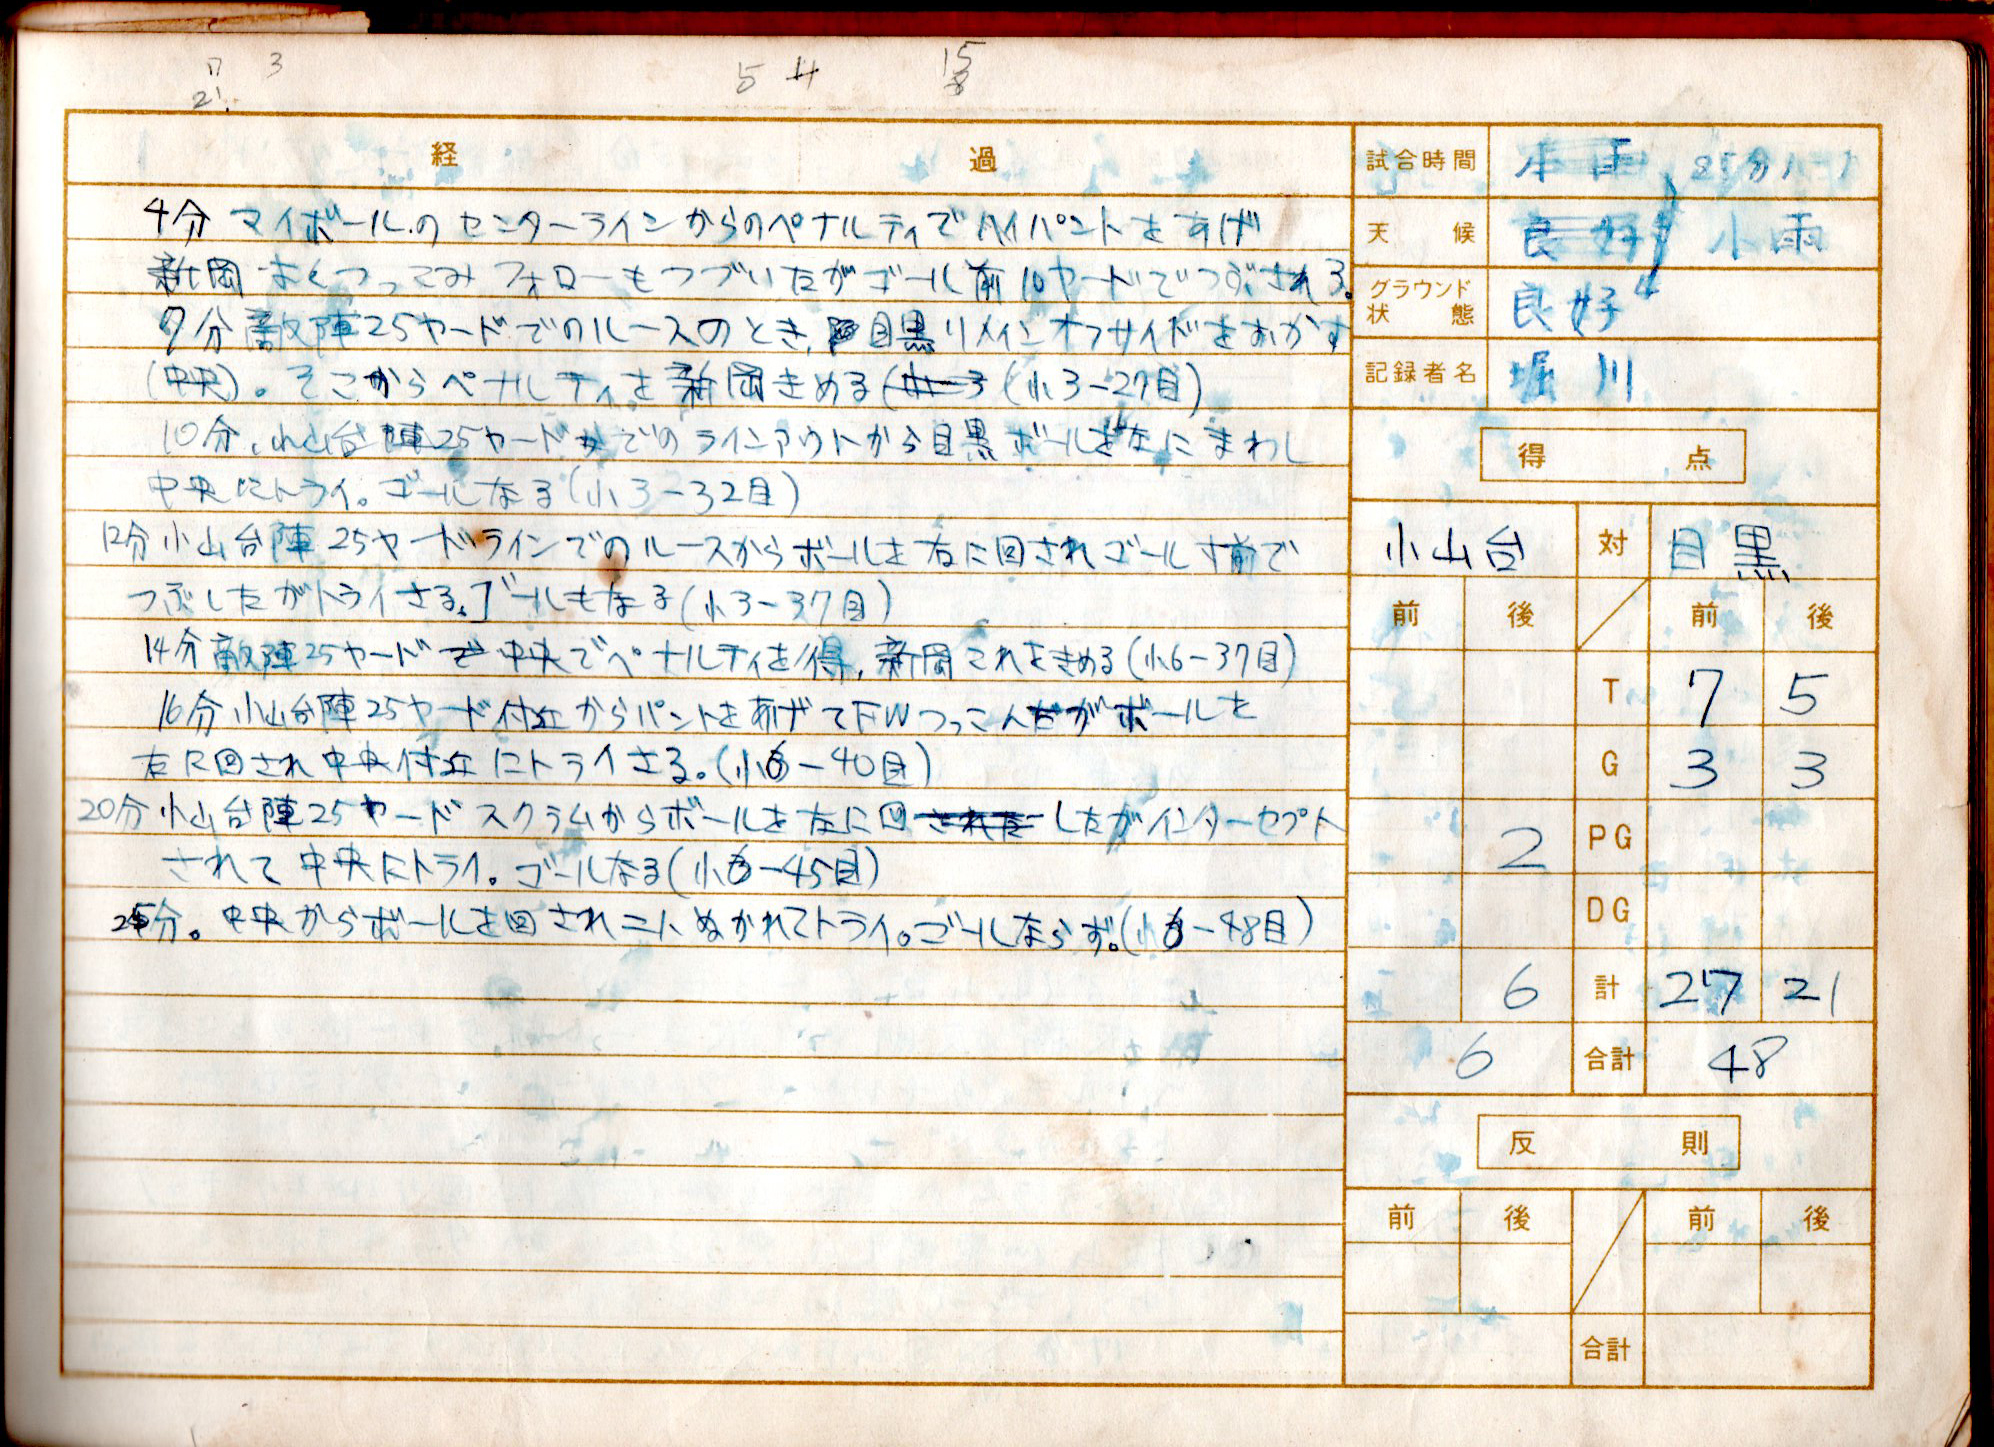 3
21
5 4
15
8
経過
4分 マイボールのセンターラインからのペナルティでハイパントをあげ
新岡 まくつっこみフォローもつづいたがゴール前10ヤードでつぶされる。
7分 敵陣25ヤードでのルースのとき、目黒リメインオフサイドをおかす
(中央)。そこからペナルティを新岡きめる(小3-27目)
10分、小山台陣25ヤードでのラインアウトから目黒ボールを左にまわし
中央にトライ。ゴールなる(小3-32目)
12分 小山台陣25ヤードラインでのルースからボールを右に回されゴール寸前で
つぶしたがトライさる。ゴールもなる(小3-37目)
14分 敵陣25ヤード中央でペナルティを得、新岡これをきめる(小6-37目)
16分 小山台陣25ヤード付近からパントをあげてFWつっこんだがボールを
右に回され中央付近にトライさる。(小6-40目)
20分 小山台陣25ヤードスクラムからボールを左に回したがインターセプト
されて中央にトライ。ゴールなる(小6-45目)
25分。中央からボールを回され二人ぬかれてトライ。ゴールならず。(小6-48目)
試合時間 25分
天候 小雨
グラウンド状態 良好
記録者名 堀川
得点
小山台 対 目黒
前 後 前 後
T 7 5
G 3 3
2 PG
DG
6 計 27 21
6 合計 48
反則
前 後 前 後
合計